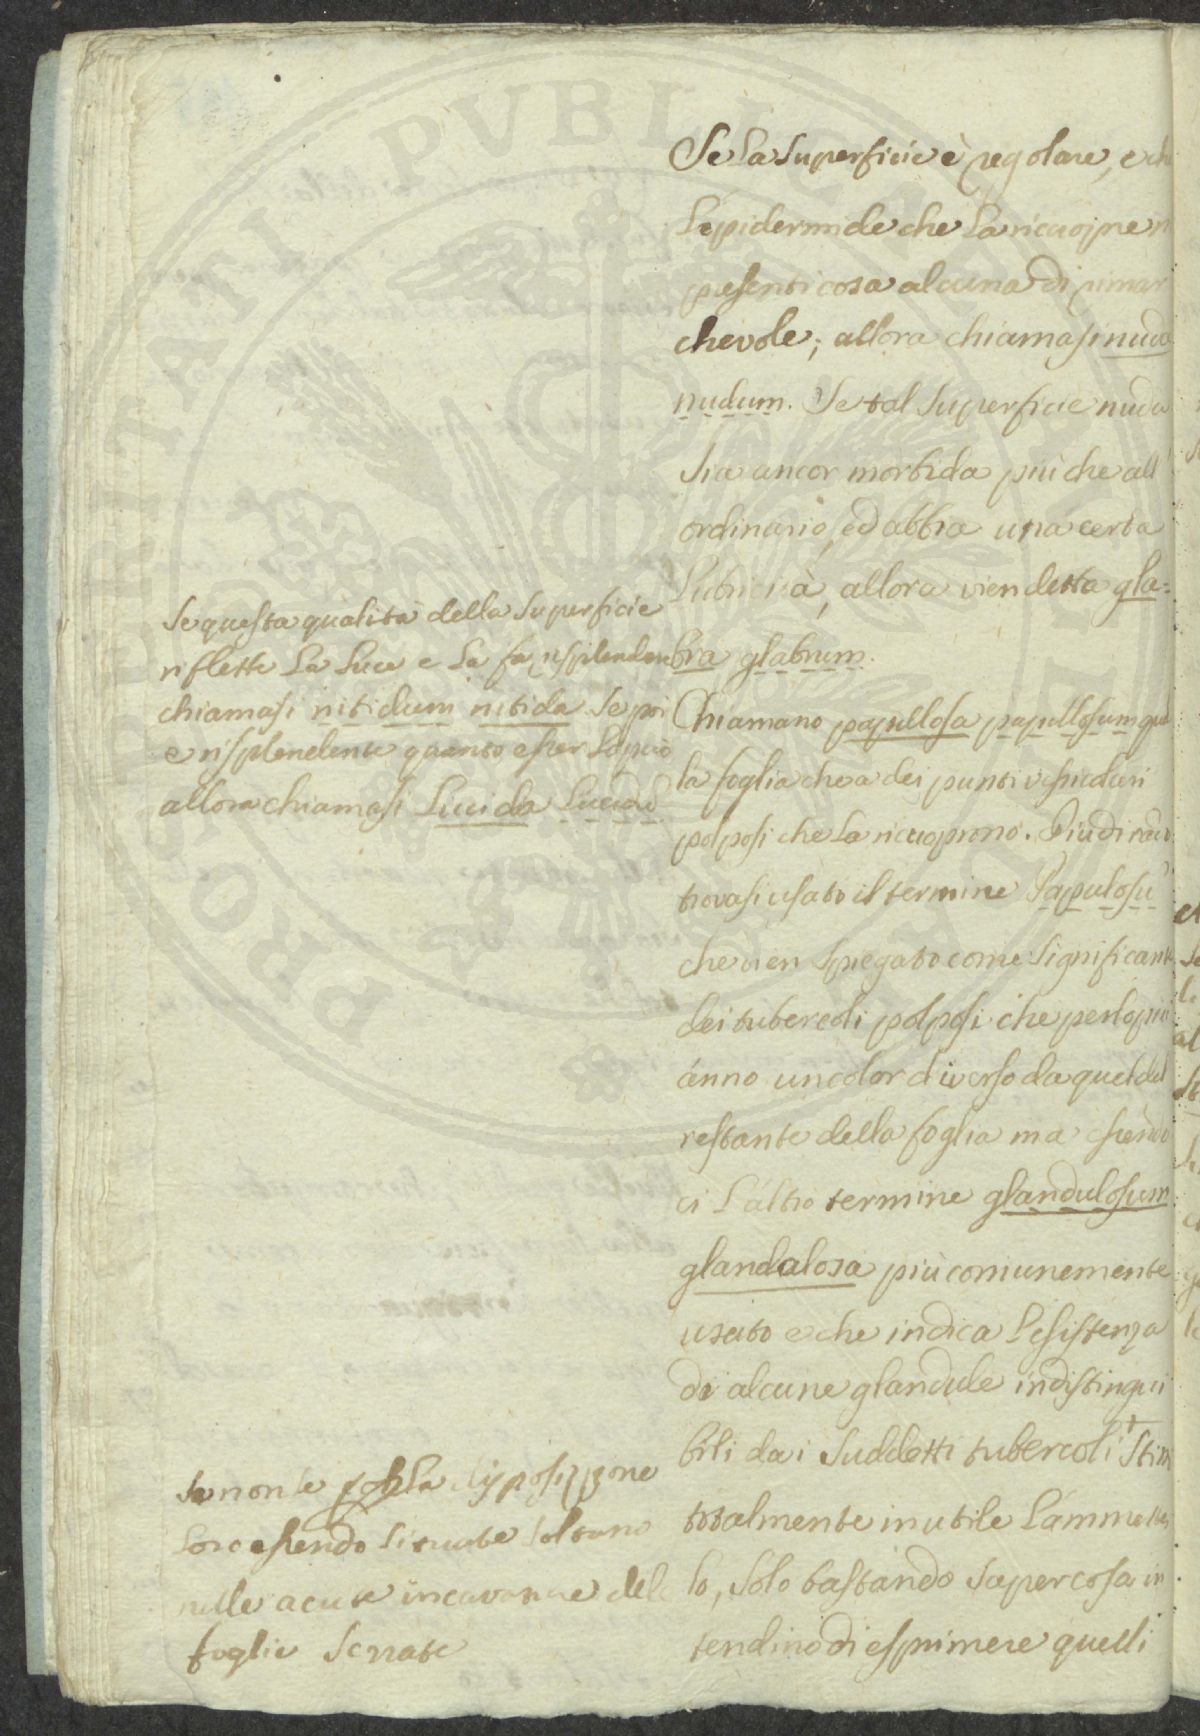 Se La Superficie è regolare, e ch
L'epidermide che La ricuopre n
presenti cosa alcuna di rimar
chevole; allora chiamasi nuda
nudum. Se tal Superficie nuda
Sia ancor morbida più che all
ordinario, ed abbia una certa
Lubricità, allora vien detta gla=
bra glabrum.
Chiamano papillosa papillosum quel
la foglia che a dei punti vesiculari
polposi che La ricuoprono. Più di rado
trovasi usato il termine Papulosu
che vien Spiegato come Significante
dei tubercoli polposi che perlopiù
ánno un color diverso da quel del
restante della foglia ma essendo
ci L'altro termine glandulosum
glandalosa più comunemente
usato e che indica L'esistenza
di alcune glandule indistingui
bili dai Suddetti tubercoli + Stim
totalmente inutile L'ammetter
lo, Solo bastando Saper cosa in
tendino di esprimere quelli
Se questa qualità della Superficie
riflette La Luce e La fa risplendere
chiamasi nitidum nitida Se poi
e risplendente quanto esser lo può
allora chiamasi Lucida Lucidu
Se non le La disposizione
Loro essendo Situate Soltano
nelle acute incavature dele
foglie Serrate
PROSPERITATI PVBLICAE AVGENDAE